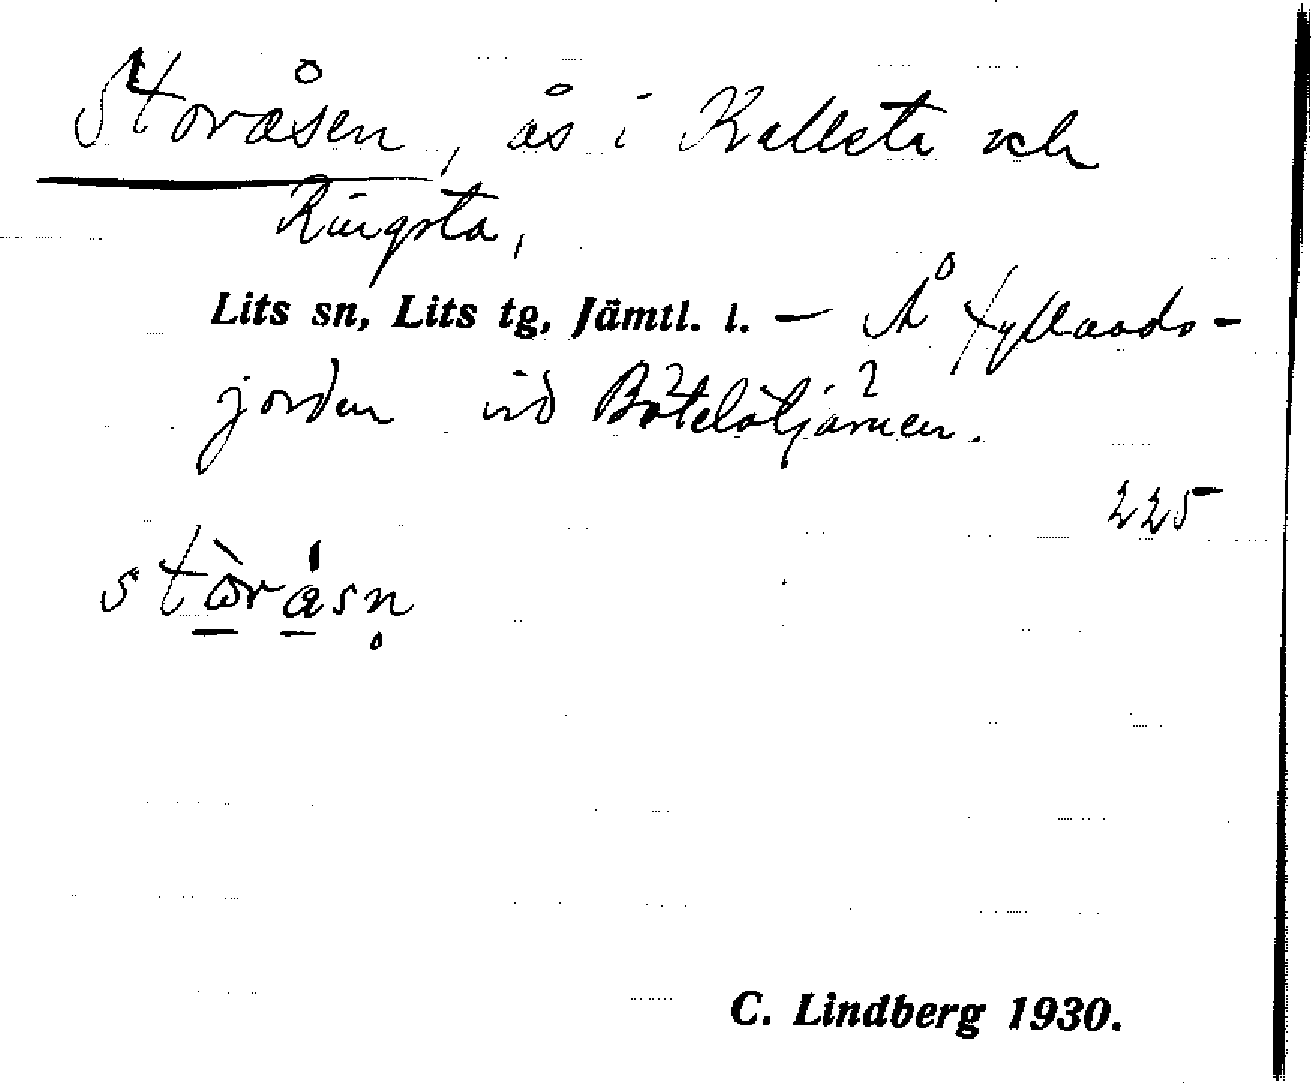 Storåsen, ås i Kallsta och
Ringsta,
Lits sn, Lits tg, Jämtl. l. — Å Hyllands-
jorden vid
225
stòråsn̥
C. Lindberg 1930.